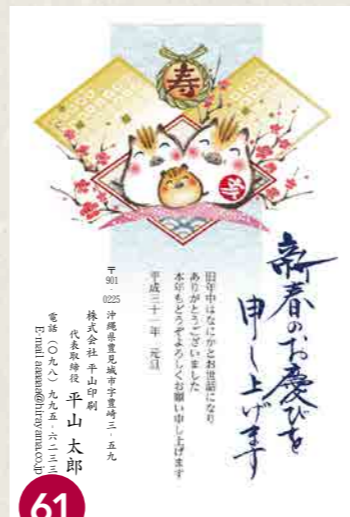 寿
新春のお慶びを
申し上げます
旧年中はなにかとお世話になり
ありがとうございました
本年もどうぞよろしくお願い申し上げます
平成三十一年 元旦
〒901-0225 沖縄県豊見城市字豊崎三-五九
株式会社 平山印刷
代表取締役 平山 太郎
電話(〇九八)九九五-六一三三
E-mail aaaaa@hirayama.co.jp
61